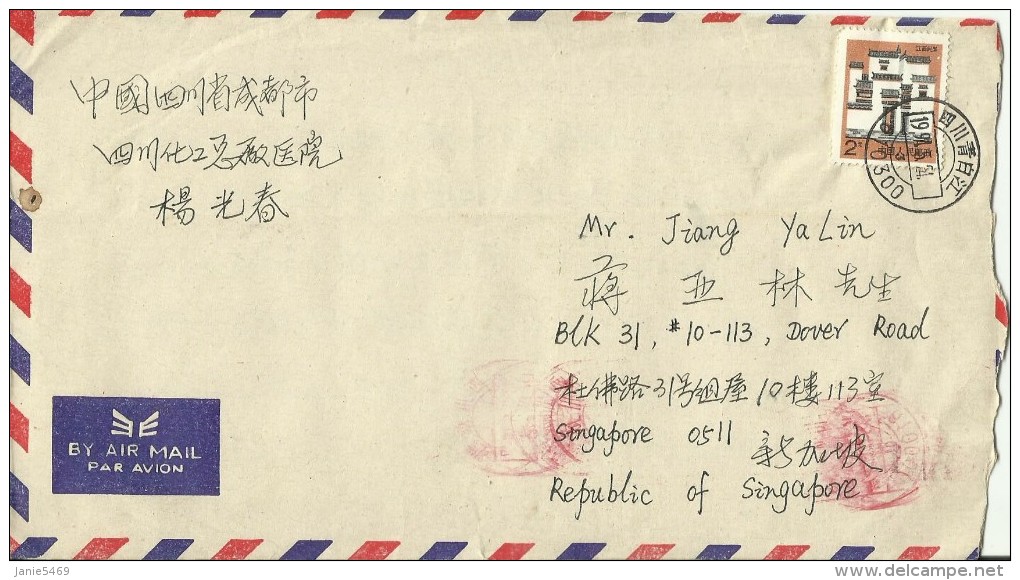 中國四川省成都市
四川化工总厰医院
楊光春
2元
中国人民邮政
四川青白江
610300
Mr. Jiang Ya Lin
蒋亚林先生
Blk 31, #10-113, Dover Road
杜佛路31号组屋10楼113室
Singapore 0511 新加坡
Republic of Singapore
BY AIR MAIL
PAR AVION
Janie5469
www.delcampe.net